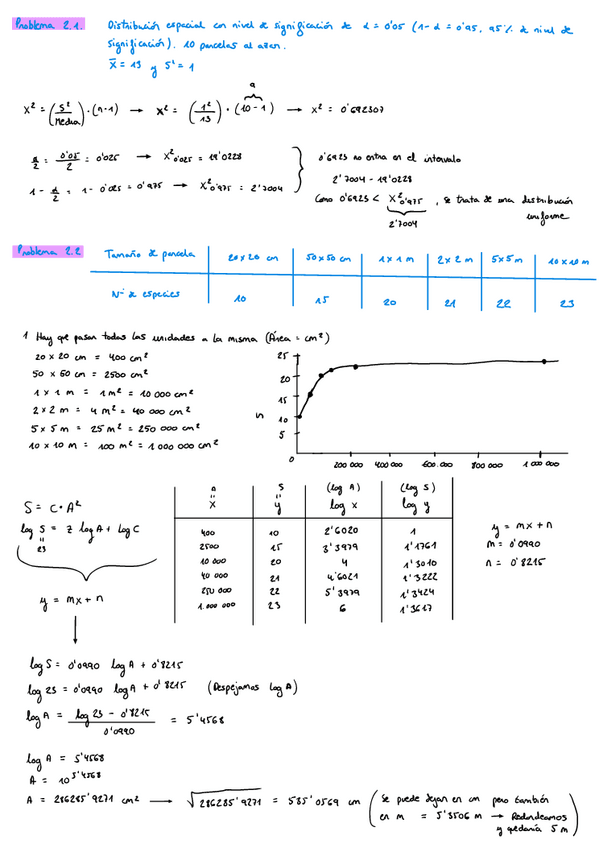 Problema 2.1. Distribución espacial con nivel de significación de α = 0'05 (1-α = 0'95, 95% de nivel de
significación). 10 parcelas al azar.
x̄ = 13 y S² = 1
a
X² = (S²/Media) · (n-1) → X² = (1²/13) · (10-1) → X² = 0'692307
α/2 = 0'05/2 = 0'025 → X²0'025 = 19'0228
1 - α/2 = 1 - 0'025 = 0'975 → X²0'975 = 2'7004
0'6923 no entra en el intervalo
2'7004 - 19'0228
Como 0'6923 < X²0'975, se trata de una distribución
uniforme
2'7004
Problema 2.2
Tamaño de parcela 20x20 cm 50x50 cm 1x1 m 2x2 m 5x5 m 10x10 m
Nº de especies 10 15 20 21 22 23
1 Hay que pasar todas las unidades a la misma (Área = cm²)
20 x 20 cm = 400 cm²
50 x 50 cm = 2500 cm²
1 x 1 m = 1 m² = 10 000 cm²
2 x 2 m = 4 m² = 40 000 cm²
5 x 5 m = 25 m² = 250 000 cm²
10 x 10 m = 100 m² = 1 000 000 cm²
25
20
15
10
5
S
0 200 000 400 000 600.000 800 000 1 000 000
S = C · A^z
log S = z log A + log C
23
y = mx + n
A S (log A) (log S)
x y log x log y
400 10 2'6020 1
2500 15 3'3979 1'1761
10 000 20 4 1'3010
40 000 21 4'6021 1'3222
250 000 22 5'3979 1'3424
1.000 000 23 6 1'3617
y = mx + n
m = 0'0990
n = 0'8215
log S = 0'0990 log A + 0'8215
log 23 = 0'0990 log A + 0'8215 (Despejamos log A)
log A = (log 23 - 0'8215)/0'0990 = 5'4568
log A = 5'4568
A = 10^5'4568
A = 286285'9271 cm² → √286285'9271 = 535'0569 cm (Se puede dejar en cm pero también
en m = 5'3506 m → Redondeamos
y quedaría 5 m)